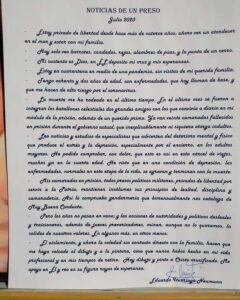 NOTICIAS DE UN PRESO
Julio 2020
- Estoy privado de libertad desde hace más de catorce años; ahora veo un atardecer
en el mar y estoy con mi familia.
- Hoy solo veo barrotes, candados, rejas, alambres de púas, y la punta de un cerro.
- Mi sustento es Dios, en ÉL deposito mi cruz y mis esperanzas.
- Estoy en cuarentena en medio de una pandemia, sin visitas de mi querida familia.
- Tengo ochenta y dos años de edad, con enfermedades, que hoy llaman de base, y
que me hacen de alto riesgo por el coronavirus.
- La muerte me ha rodeado en el último tiempo. En el último mes se fueron a
integrar los batallones celestiales dos grandes amigos con los que conviví a diario en mi
módulo de la prisión, además de un querido primo. Ya van veinte camaradas fallecidos
en prisión durante el gobierno actual, que inexplicablemente ni siquiera otorga indultos.
- Las noticias y estudios de especialistas que advierten del deterioro mental y físico
que produce el estrés y la depresión, especialmente por el encierro, en los adultos
mayores. He podido comprobar, con dolor, que este es así en esta cárcel de viejos,
muchos ya en la cuarta edad. He visto que en una condición, de depresión, las
enfermedades, normales en esta etapa de la vida, se agravan y terminan con la muerte.
- Mis camaradas en prisión, todos presos políticos militares, privados de libertad por
servir a la Patria, mantienen incólumes sus principios de lealtad, disciplina y
camaradería. Así lo comprueba gendarmería que incansablemente nos cataloga de
Muy Buena Conducta.
- Pero los años no pasan en vano; y las acciones de autoridades y políticos desleales
y traicioneros, además de jueces prevaricadores, minan, aunque no lo queramos, la
salidez de nuestros valores. En algunos más, en otros menos.
- El aislamiento, y ahora la soledad sin contacto directo con la familia, hacen que
me haya volcado al dibujo y a la pintura, cosa que nunca había hecho en mi vida
profesional y en mis tiempos de retiro. Hoy dibujo y pinto a Cristo crucificado. Me
apoyo en Él y veo en su figura rayos de esperanza.
Eduardo Iturriaga Neumann